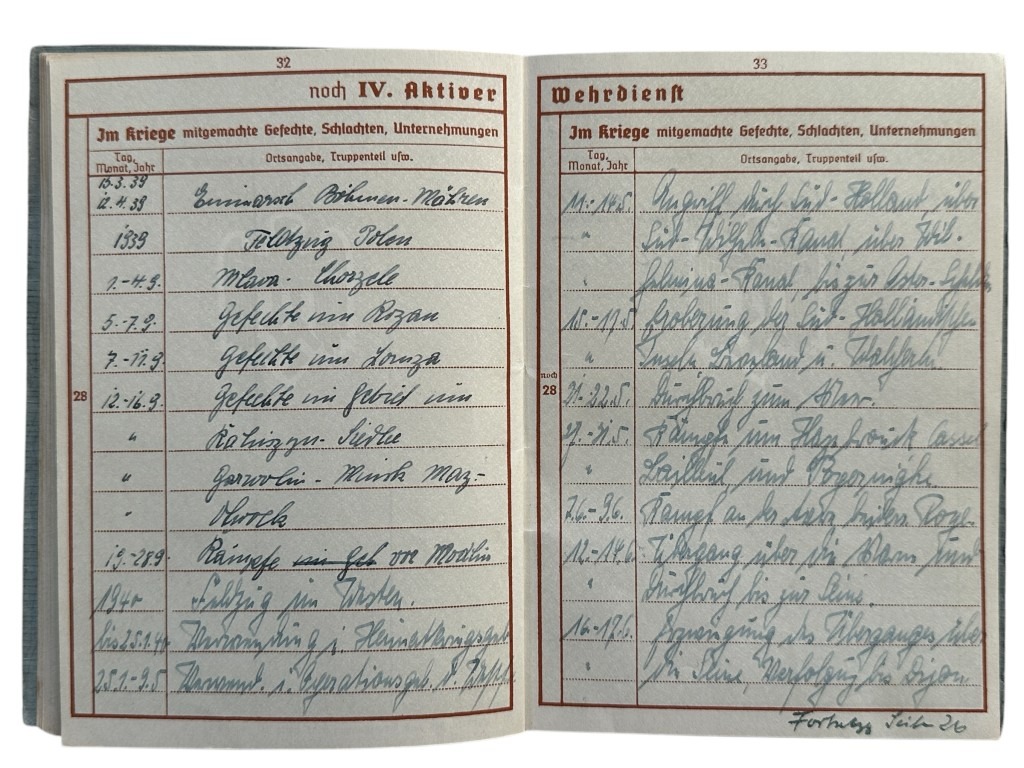 32
noch IV. Aktiver
Im Kriege mitgemachte Gefechte, Schlachten, Unternehmungen
Tag, Monat, Jahr
Ortsangabe, Truppenteil usw.
28
12.4.39 Einmarsch Böhmen-Mähren
1939 Feldzug Polen
1.-4.9. Mlava- Chorzele
5.-7.9. Gefechte um Rozan
7.-11.9. Gefechte um Lomza
12.-16.9. Gefechte im Gebiet um
" Kaluszyn- Siedlce
" Garwolin- Minsk Maz-
" Otwock
19.-28.9. Kämpfe vor Modlin
1940 Feldzug im Westen.
bis 25.1.40 Verwendung i. Heimatkriegsgeb.
25.1.-9.5 Verwend. i. Operationsgeb. d.
33
Wehrdienst
Im Kriege mitgemachte Gefechte, Schlachten, Unternehmungen
Tag, Monat, Jahr
Ortsangabe, Truppenteil usw.
noch 28
11.-14.5. Angriff durch Süd-Holland, über
" Süd-Wilhelm-Kanal über Wil-
" helmina-Kanal, bis zur Oster-Schelde
15.-17.5. Eroberung der Süd-Holländischen
" Inseln, Beveland u. Walcheren.
21.-22.5. Durchbruch zum Meer.
27.-31.5. Kämpfe um Hazebrouck Cassel
" Bailleul, und Poperinghe.
Kampf an der beiders. Roye.
12.-14.6. Übergang über die Marne, und
" Durchbruch bis zur Seine.
16.-17.6. Erzwingung des Überganges über
" die Seine, Verfolgung bis Dijon
Seite 26